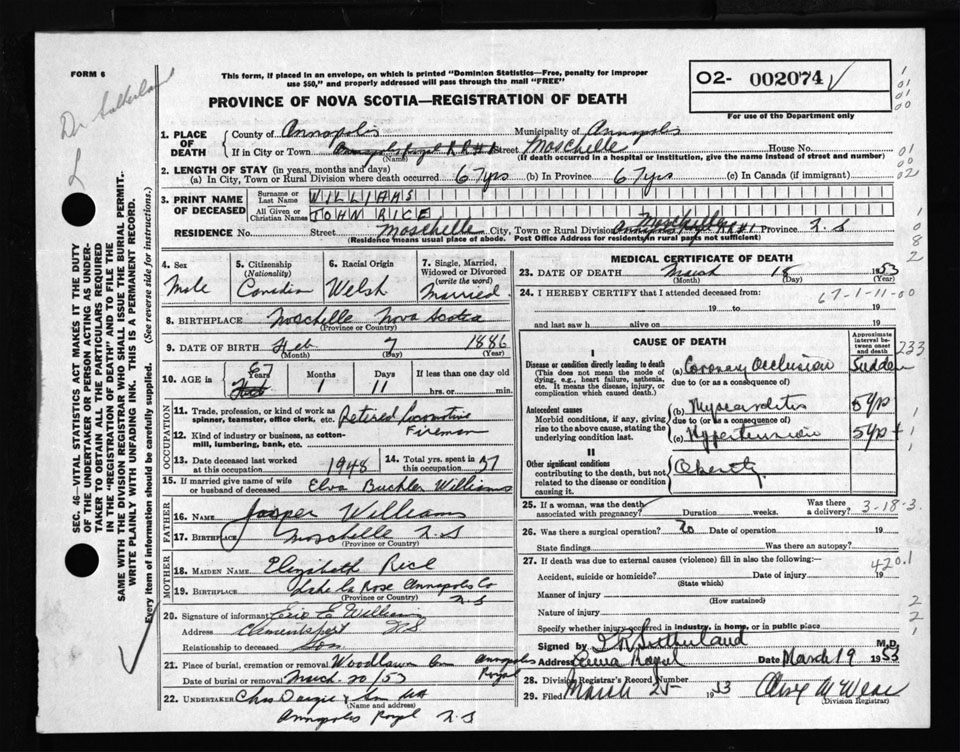 FORM 6
Dr Sutherland
This form, if placed in an envelope, on which is printed "Dominion Statistics—Free, penalty for improper
use $50," and properly addressed will pass through the mail "FREE"
PROVINCE OF NOVA SCOTIA—REGISTRATION OF DEATH
O2- 002074
For use of the Department only
1. PLACE OF DEATH
County of Annapolis Municipality of Annapolis
If in City or Town Annapolis Royal R R #1 Street Moschelle House No.
(Name) (If death occurred in a hospital or institution, give the name instead of street and number)
2. LENGTH OF STAY (in years, months and days)
(a) In City, Town or Rural Division where death occurred 67 yrs (b) In Province 67 yrs (c) In Canada (if immigrant)
3. PRINT NAME OF DECEASED
Surname or Last Name WILLIAMS
All Given or Christian Names JOHN RICE
RESIDENCE No. Street Moschelle City, Town or Rural Division Moschelle Annapolis Royal RR#1 Province N.S
(Residence means usual place of abode. Post Office Address for residents in rural parts not sufficient)
4. Sex Male
5. Citizenship (Nationality) Canadian
6. Racial Origin Welsh
7. Single, Married, Widowed or Divorced (write the word) Married
8. BIRTHPLACE Moschelle Nova Scotia
(Province or Country)
9. DATE OF BIRTH Feb 7 1886
(Month) (Day) (Year)
10. AGE in Years Months Days If less than one day old
1 11 hrs. or min.
OCCUPATION
11. Trade, profession, or kind of work as spinner, teamster, office clerk, etc. Retired Locomotive
Fireman
12. Kind of industry or business, as cotton-mill, lumbering, bank, etc.
13. Date deceased last worked at this occupation 1948
14. Total yrs. spent in this occupation 37
15. If married give name of wife or husband of deceased Elva Buckler Williams
FATHER
16. NAME Jasper Williams
17. BIRTHPLACE Moschelle N.S
(Province or Country)
MOTHER
18. MAIDEN NAME Elizabeth Rice
19. BIRTHPLACE Lake La Rose Annapolis Co
(Province or Country) N.S
20. Signature of informant Eric E Williams
Address Clementsport N.S
Relationship to deceased Son
21. Place of burial, cremation or removal Woodlawn Annapolis Royal
Date of burial or removal March 20/53
22. UNDERTAKER Chas Dargie & Son
(Name and address)
Annapolis Royal N.S
MEDICAL CERTIFICATE OF DEATH
23. DATE OF DEATH March 18 1953
(Month) (Day) (Year)
24. I HEREBY CERTIFY that I attended deceased from:
67-1-11-00
19 to 19
and last saw h alive on 19
CAUSE OF DEATH
Approximate interval between onset and death
I
Disease or condition directly leading to death
(This does not mean the mode of dying, e.g., heart failure, asthenia, etc. It means the disease, injury, or complication which caused death.)
(a) Coronary Occlusion Sudden
due to (or as a consequence of)
Antecedent causes
Morbid conditions, if any, giving rise to the above cause, stating the underlying condition last.
(b) Myocarditis 5 yrs
due to (or as a consequence of)
(c) Hypertension 5 yrs +
II
Other significant conditions
contributing to the death, but not related to the disease or condition causing it.
Obesity
233
25. If a woman, was the death associated with pregnancy? Duration weeks. Was there a delivery?
3-18-3
26. Was there a surgical operation? No Date of operation 19
State findings Was there an autopsy?
27. If death was due to external causes (violence) fill in also the following:
420.1
Accident, suicide or homicide? Date of injury 19
(State which)
Manner of injury
(How sustained)
Nature of injury
Specify whether injury occurred in industry, in home, or in public place
Signed by Sutherland M.D.
Address Anna Royal Date March 19 1953
28. Division Registrar's Record Number
29. Filed March 25 1953
(Division Registrar)
SEC. 46—VITAL STATISTICS ACT MAKES IT THE DUTY
OF THE UNDERTAKER OR PERSON ACTING AS UNDER-
TAKER TO OBTAIN ALL THE PARTICULARS REQUIRED
IN THE "REGISTRATION OF DEATH" AND TO FILE THE
SAME WITH THE DIVISION REGISTRAR WHO SHALL ISSUE THE BURIAL PERMIT.
WRITE PLAINLY WITH UNFADING INK. THIS IS A PERMANENT RECORD.
Every item of information should be carefully supplied. (See reverse side for instructions.)